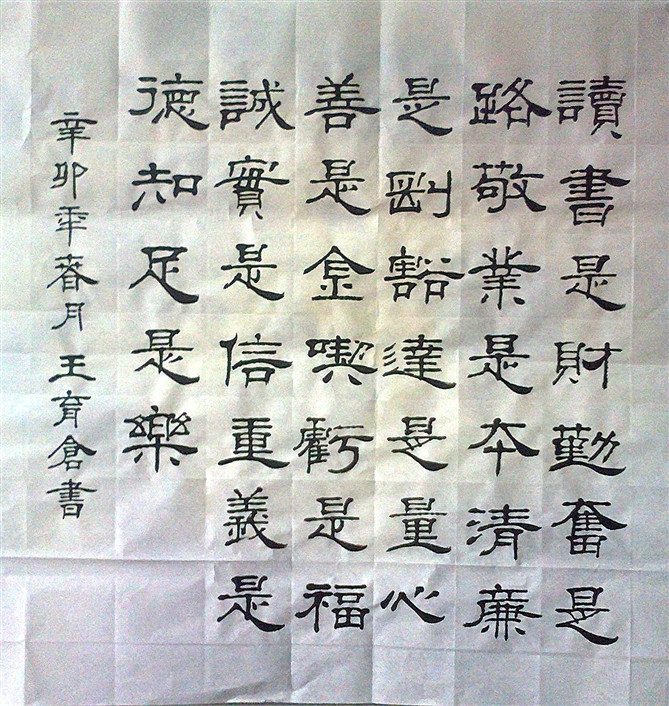 讀書是財勤奮是
路敬業是本清廉
是剛豁達是量心
善是金喫虧是福
誠實是信重義是
德知足是樂
辛卯年春月王育倉書